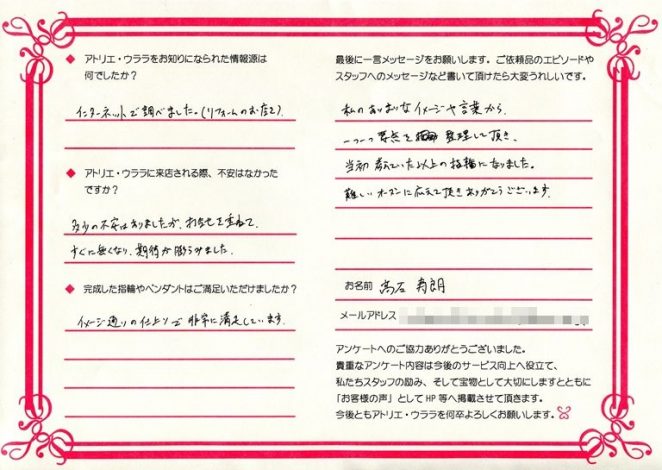 ◆ アトリエ・ウララをお知りになられた情報源は
何でしたか?
インターネットで調べました。(リフォームのお店で)
◆ アトリエ・ウララに来店される際、不安はなかった
ですか?
多少の不安はありましたが、お打合せを重ねて、
すぐに無くなり、期待が膨らみました。
◆ 完成した指輪やペンダントはご満足いただけましたか?
イメージ通りの仕上りで非常に満足しています。
最後に一言メッセージをお願いします。ご依頼品のエピソードや
スタッフへのメッセージなど書いて頂けたら大変うれしいです。
私のあいまいなイメージや言葉から、
一つ一つ 要点を 整理して頂き、
当初 考えていた以上の指輪になりました。
難しいオーダーに応えて頂きありがとうございます。
お名前 高石 寿朗
メールアドレス
アンケートへのご協力ありがとうございました。
貴重なアンケート内容は今後のサービス向上へ役立て、
私たちスタッフの励み、そして宝物として大切にしますとともに
「お客様の声」として HP 等へ掲載させて頂きます。
今後ともアトリエ・ウララを何卒よろしくお願いします。